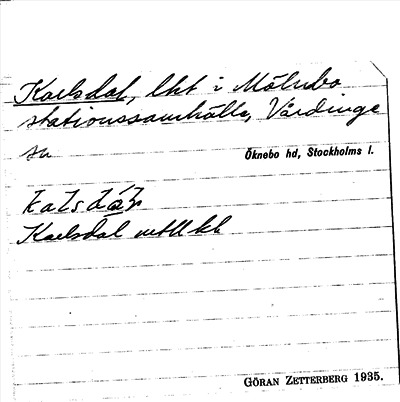 Karlsdal, lht i Mölnbo
stationssamhälle, Vårdinge
sn Öknebo hd, Stockholms l.
Karlsdal
GÖRAN ZETTERBERG 1935.